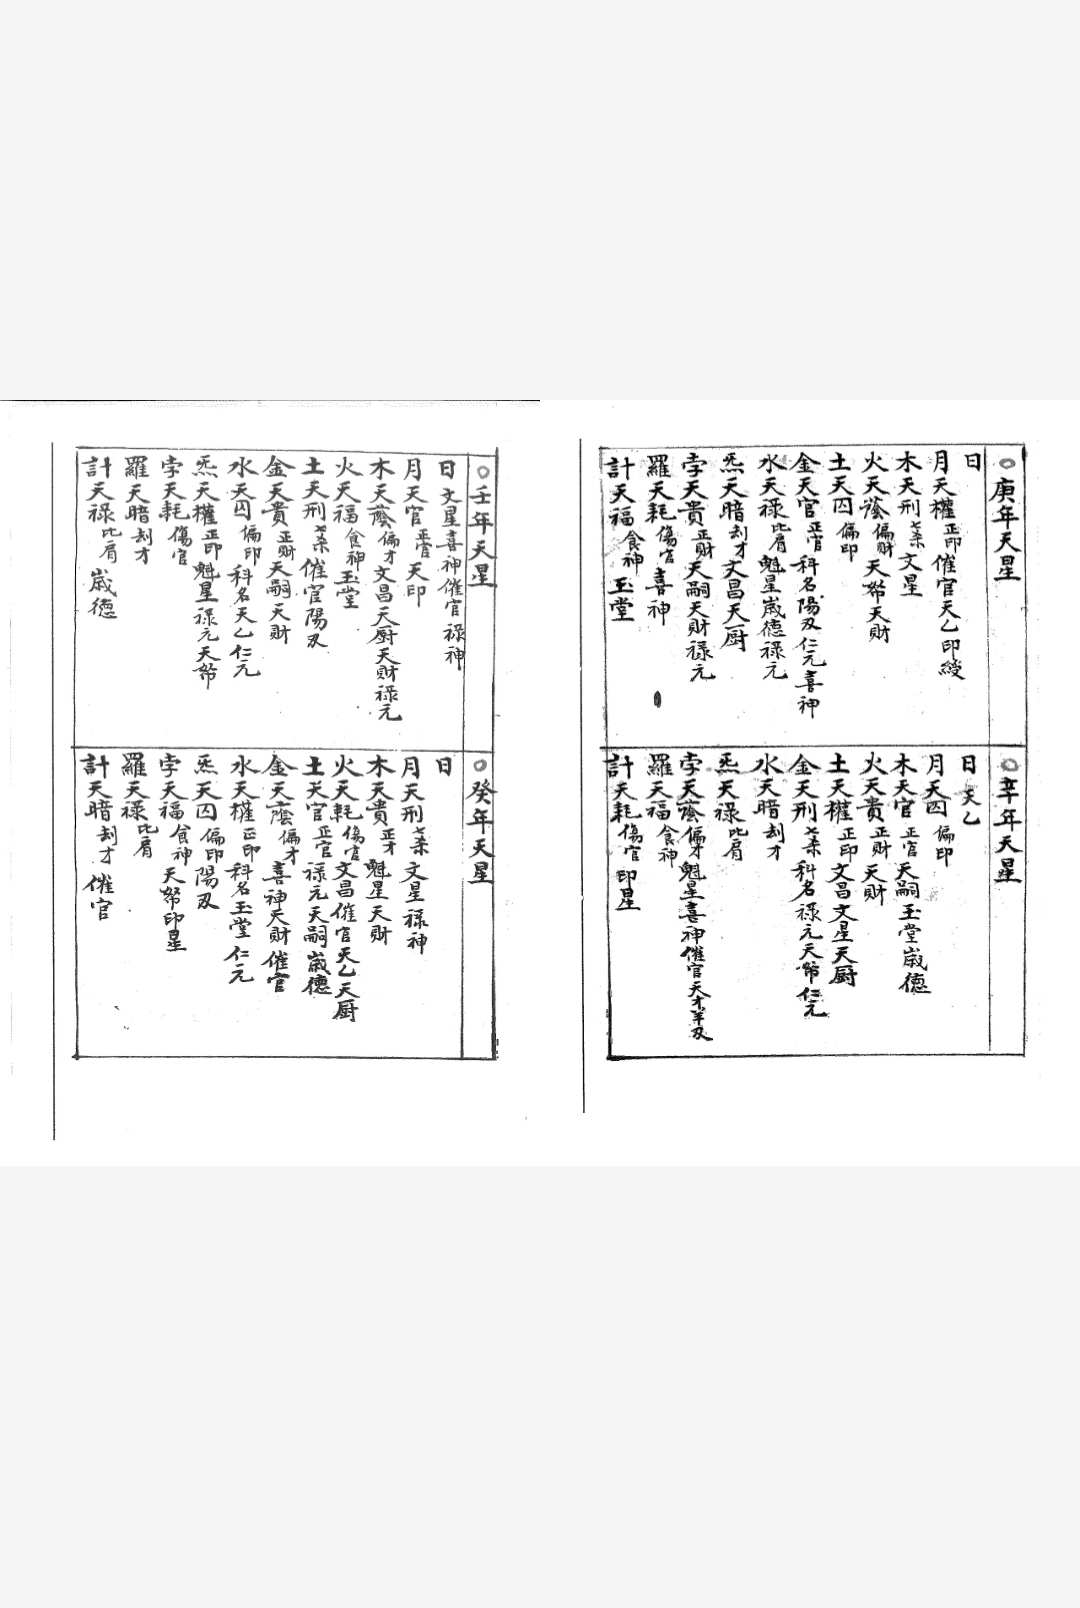 ○庚年天星
日
月天權正印催官天乙印綬
木天刑七杀文星
火天蔭偏財天幣天財
土天囚偏印
金天官正官科名陽刃仁元喜神
水天祿比肩魁星歲德祿元
炁天暗刦才文昌天厨
孛天貴正財天嗣天財祿元
羅天耗傷官喜神
計天福食神玉堂
○辛年天星
日天乙
月天囚偏印
木天官正官天嗣玉堂歲德
火天貴正財天財
土天權正印文昌文星天厨
金天刑七杀科名祿元天幣仁元
水天暗刦才
炁天祿比肩
孛天蔭偏才魁星喜神催官天才羊刃
羅天福食神
計天耗傷官印星
○壬年天星
日文星喜神催官祿神
月天官正官天印
木天蔭偏才文昌天厨天財祿元
火天福食神玉堂
土天刑七杀催官陽刃
金天貴正財天嗣天財
水天囚偏印科名天乙仁元
炁天權正印魁星祿元天幣
孛天耗傷官
羅天暗刦才
計天祿比肩歲德
○癸年天星
日
月天刑七杀文星祿神
木天貴正才魁星天財
火天耗傷官文昌催官天乙天厨
土天官正官祿元天嗣歲德
金天蔭偏才喜神天財催官
水天權正印科名玉堂仁元
炁天囚偏印陽刃
孛天福食神天幣印星
羅天祿比肩
計天暗刦才催官